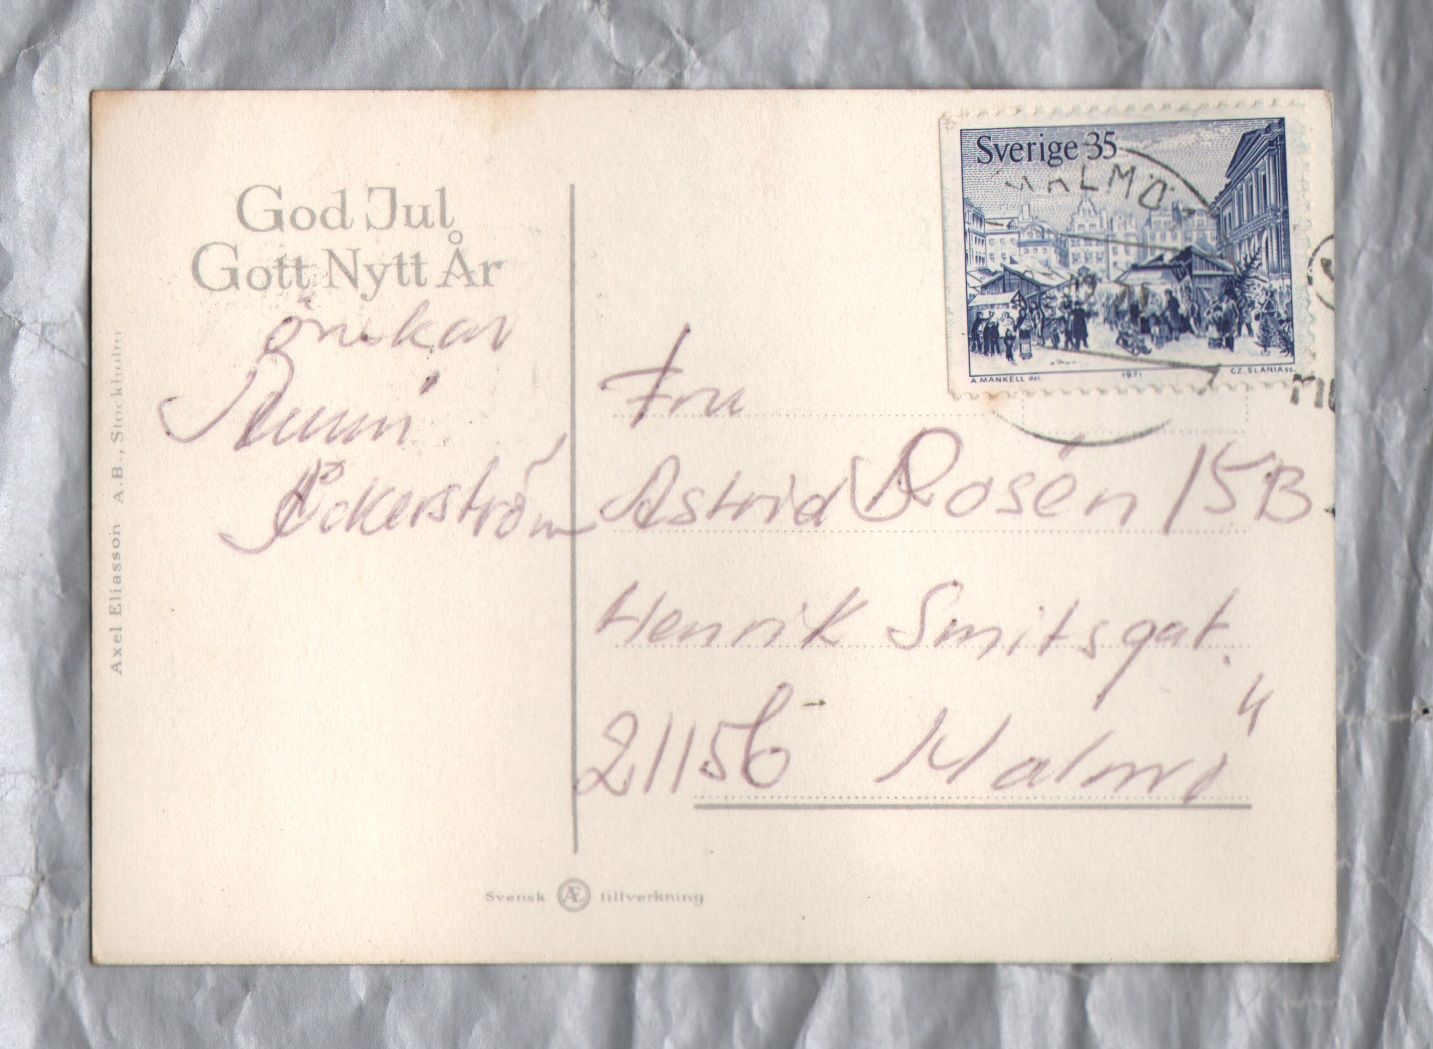 God Jul
Gott Nytt År
önskar
Åckerström
Axel Eliasson A.B., Stockholm
Sverige 35
MALMÖ
A. MANKELL del. 1971 CZ. SLANIA sc.
Fru
Astrid Rosén 15B
Henrik Smitsgat.
21156 Malmö
Svensk Æ tillverkning